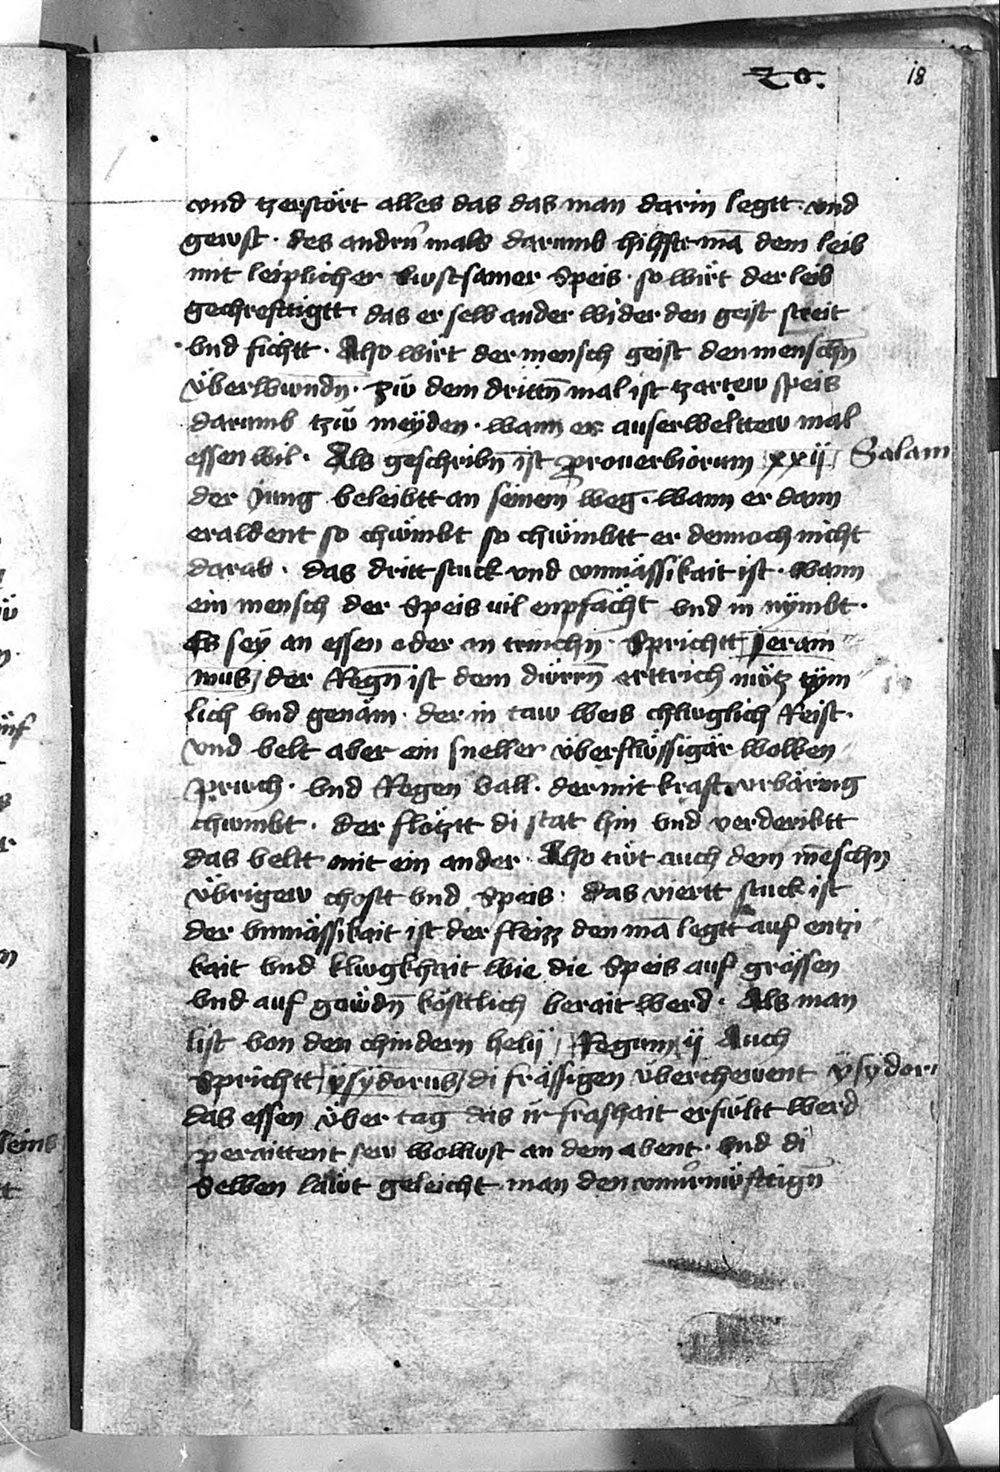 20. 18
vnd tzerstört alles das das man darin legtt vnd
gewst · des andrn mals darumb hilfstu mā dem leib
mit leiplicher lustsamer Speis · so wirt der leib
gechrefttigtt das er selb ander wider den geist streit
vnd fichtt · Also wirt der mensch geist den menschn̄
vberwundn̄ · zw dem drittn̄ mal ist tzartew speis
darumb tzw meyden · wann er auserwelttew mal
essen wil · Als geschribn̄ ist prouerbiorum xxij Salam
der Jung beleibtt an seinem weg · wann er dann
eraldent so chümbt so chümbtt er dennoch nicht
darab · das dritt stuck vnd vnmässikait ist · wann
ein mensch der Speis vil enpfächt vnd in nymbt ·
Es sey an essen oder an trinchn̄ · Sprichtt Jeram
mus / der Regn̄ ist dem dürrn̄ erttrich nutz tzym
lich vnd genäm · der in taw weis chluglich Reist ·
vnd velt aber ein sneller vberflüssigär wolken
pruch · vnd Regen vall · der mit kraft vrbäring
chumbt · der flötztt di stat hin vnd verderibtt
das veltt mit ein ander · Also tüt auch dem mēschn
vbrigew chostt vnd Speis · das viertt stuck ist
der vnmässikait ist der fleizz den mā legtt auf entzi
kait vnd klugkhait wie die Speis auf grössen
vnd auf gewdn̄ kösttlich berait werd · Als man
list von den chindern helij / Regum ij Auch
Sprichtt / ysydorus / di frässigen vberchewent ysydor
das essen vber tag das ir frashait erfültt werd
peraittent sew wollust an dem abent · vnd di
Selben läwt geleicht man den vnuernüfttign̄